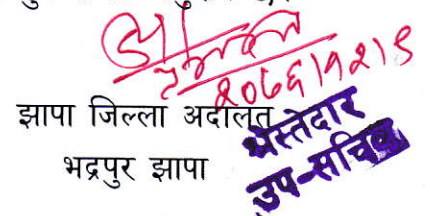 २०७६।१२।९
झापा जिल्ला अदालत
भद्रपुर झापा
श्रेस्तेदार
उप-सचिव